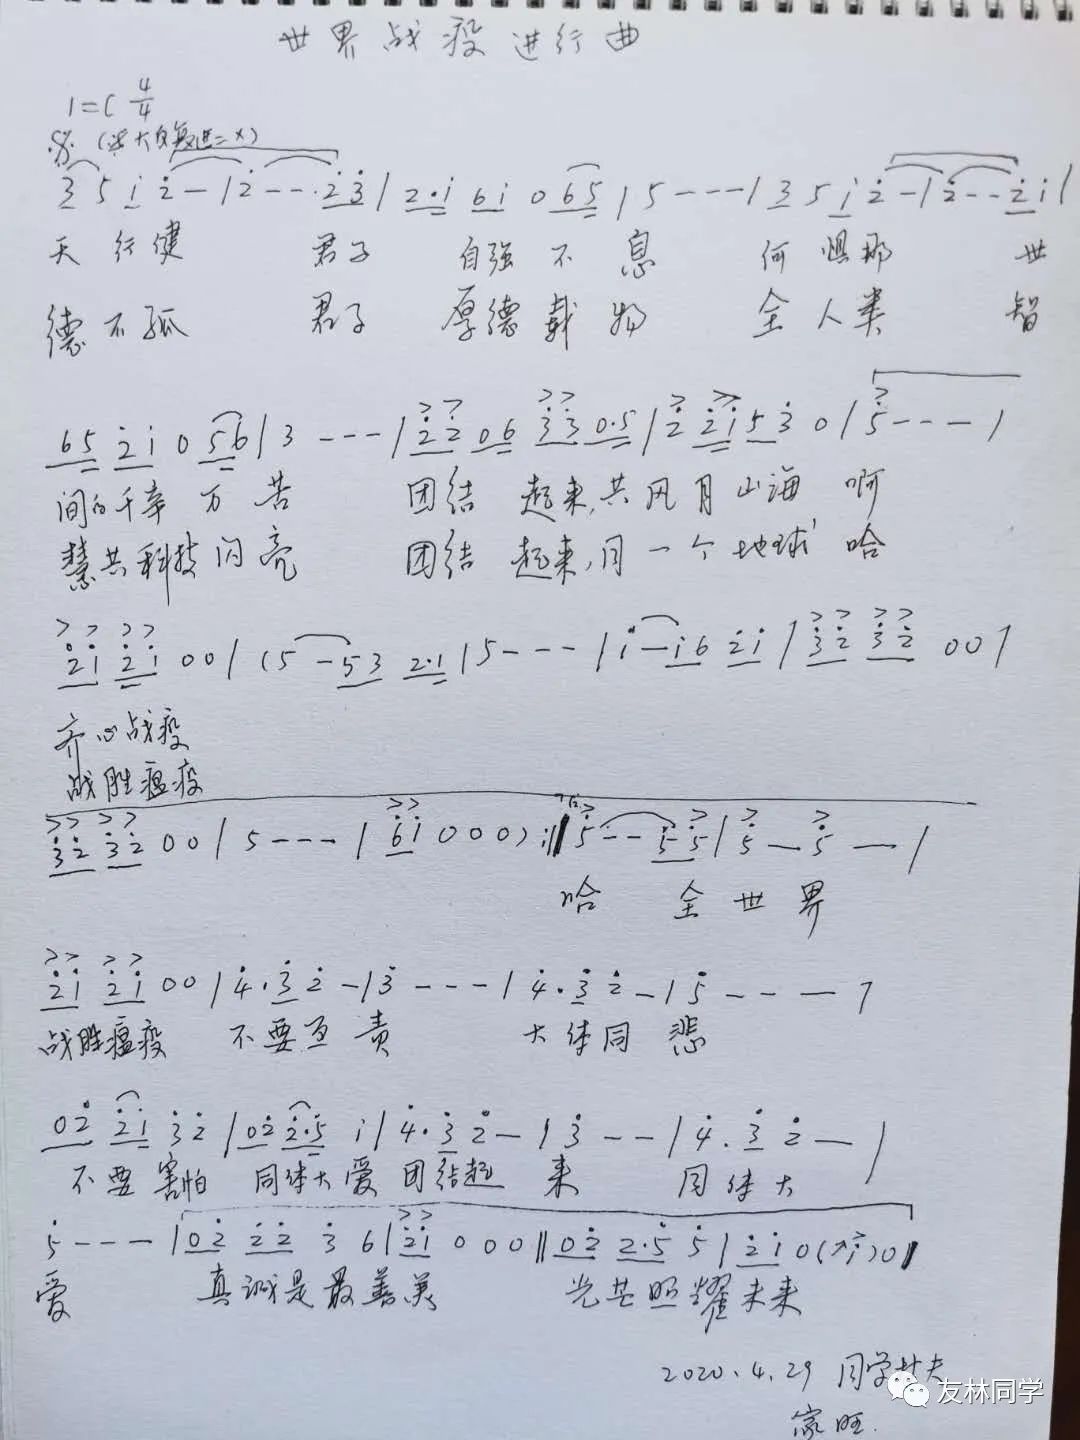 世界战疫进行曲
1=C 4/4
3 5 i 2 — | 2 - - · 2 3 | 2 · i 6 i 0 6 5 | 5 - - - | 3 5 i 2 — | 2 - - 2 i |
天行健 君子 自强不息 何惧那 世
德不孤 君子 厚德载物 全人类 智
6 5 2 i 0 5 6 | 3 - - - | 2 2 0 6 3 3 0 · 5 | 2 2 i 5 3 0 | 5 - - - |
间的千辛万苦 团结 起来,共风月山海 啊
慧共科技闪亮 团结 起来,同一个地球 哈
2 i 2 i 0 0 | ( 5 — 5 3 2 · 1 | 5 - - - | i — i 6 2 i | 3 2 3 2 0 0 |
齐心战疫
战胜瘟疫
3 2 3 2 0 0 | 5 - - - | 6 i 0 0 0 ) :‖ 5 - - 5 5 | 5 — 5 — |
哈 全世界
2 i 2 i 0 0 | 4 · 3 2 — | 3 - - - | 4 · 3 2 — | 5 - - — |
战胜瘟疫 不要互责 大体同悲
0 2 2 i 3 2 | 0 2 2 · 5 i | 4 · 3 2 — | 3 - - | 4 · 3 2 — |
不要害怕 同体大爱 团结起来 同体大
5 - - - | 0 2 2 2 3 6 | 2 i 0 0 0 ‖ 0 2 2 · 5 5 | 2 i 0 ( i ) 0 ‖
爱 真诚是最善美 光芒照耀未来
2020.4.29 同学村夫
家旺.
友林同学